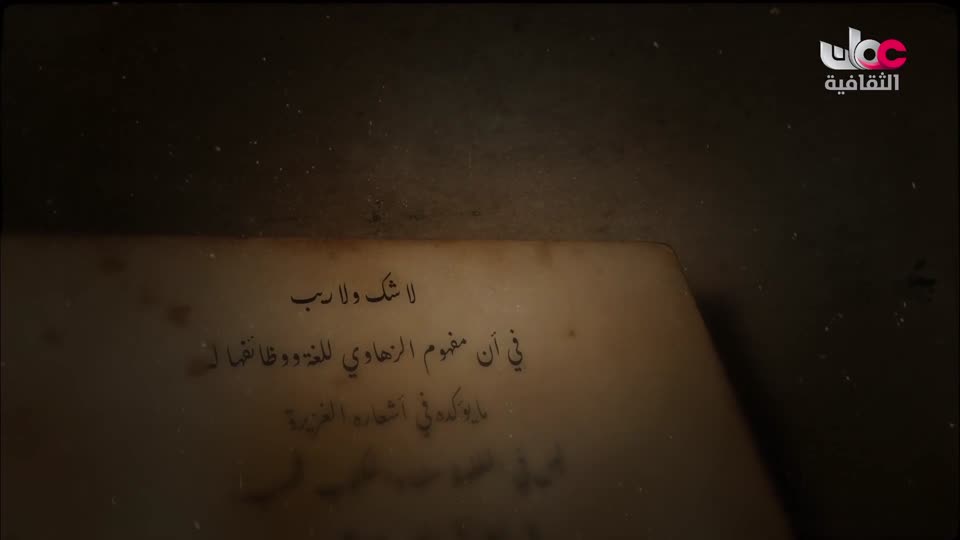 عمان
الثقافية
لا شك ولا ريب
في أن مفهوم الزهاوي للغة ووظائفها لـ
ما يؤكده في أشعاره الغزيرة